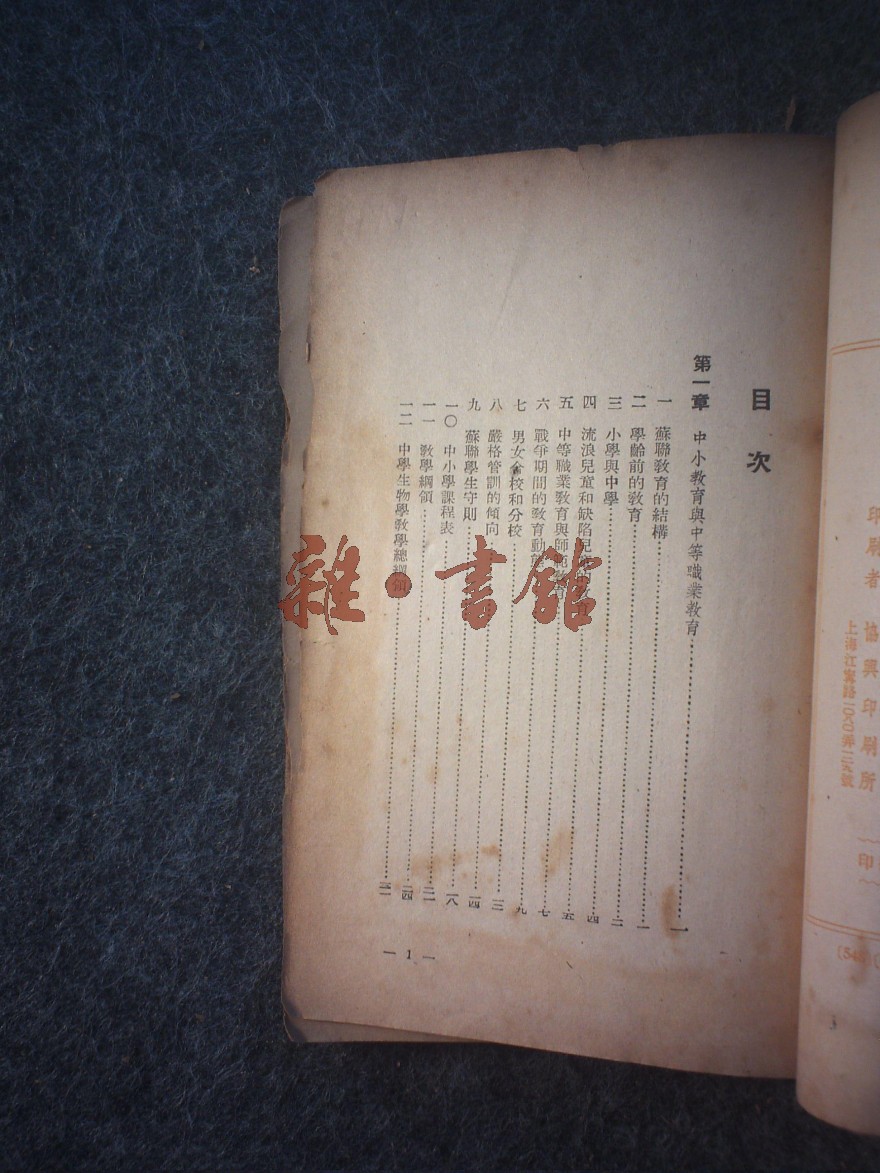 目次
第一章 中小教育與中等職業教育……一
一 蘇聯教育的結構……一
二 學齡前的教育……一
三 小學與中學……二
四 流浪兒童和缺陷兒童的教育……四
五 中等職業教育與師範教育……五
六 戰爭期間的教育動態……七
七 男女合校和分校……九
八 嚴格管訓的傾向
九 蘇聯學生守則……一四
一〇 中小學課程表……一八
一一 教學綱領
一二 中學生物學教學總綱領
— 1 —
雜·書館
印刷者 協興印刷所
上海江寧路
印